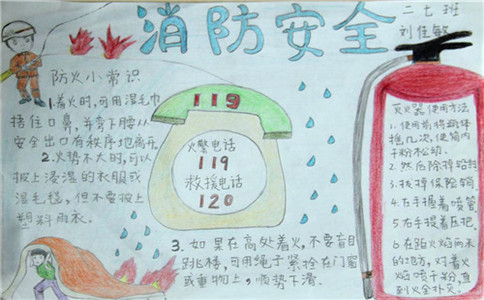 消防安全
二七班
刘佳敏
防火小常识
1.着火时,可用湿毛巾
捂住口鼻,并弯下腰从
安全出口有秩序地离开。
2.火势不大时,可以
披上浸湿的衣服或
湿毛毯,但不要披上
塑料雨衣。
119
火警电话
119
救援电话
120
3.如果在高处着火,不要盲目
跳楼,可用绳子紧拴在门窗
或重物上,顺势下滑。
灭火器使用方法
1.使用前将瓶体
摇几次,使筒内
干粉松动.
2.然后除掉铅封
3.拔掉保险销.
4.右手握着喷管
5.右手提着压把.
6.在距火焰两米
的地方,对着火
焰喷干粉直
到火全扑灭.